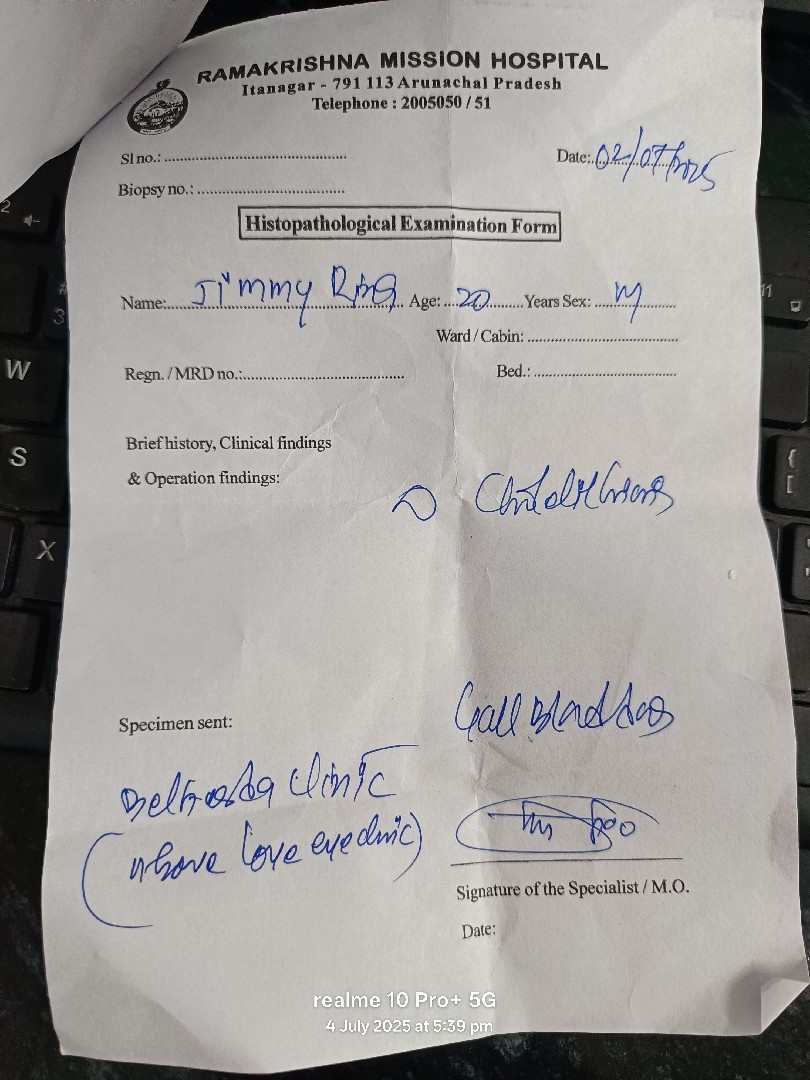 RAMAKRISHNA MISSION HOSPITAL
Itanagar - 791 113 Arunachal Pradesh
Telephone : 2005050 / 51
Sl no.:
Date: 02/07/2025
Biopsy no.:
Histopathological Examination Form
Name: Jimmy Age: 20 Years Sex: M
Ward / Cabin:
Regn. / MRD no.:
Bed.:
Brief history, Clinical findings
& Operation findings:
Specimen sent: Gall Bladder
Clinic
(Above Love eye clinic)
Signature of the Specialist / M.O.
Date:
realme 10 Pro+ 5G
4 July 2025 at 5:39 pm
2
3
W
S
X
11
{
[